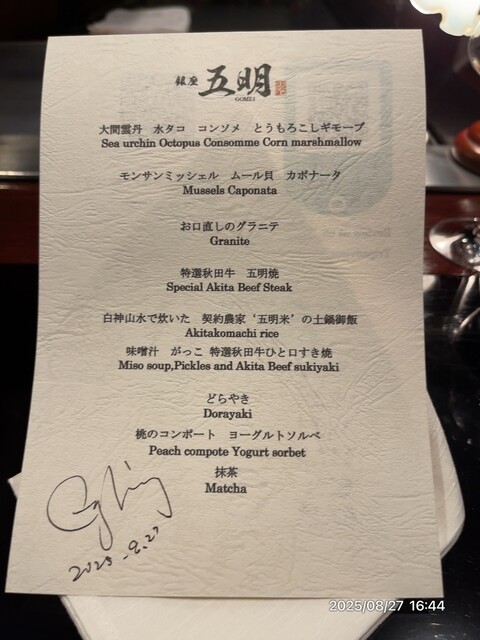 銀座 五明
GOMEI
大間雲丹 水タコ コンソメ とうもろこしギモーブ
Sea urchin Octopus Consomme Corn marshmallow
モンサンミッシェル ムール貝 カポナータ
Mussels Caponata
お口直しのグラニテ
Granite
特選秋田牛 五明焼
Special Akita Beef Steak
白神山水で炊いた 契約農家‘五明米’の土鍋御飯
Akitakomachi rice
味噌汁 がっこ 特選秋田牛ひと口すき焼
Miso soup,Pickles and Akita Beef sukiyaki
どらやき
Dorayaki
桃のコンポート ヨーグルトソルベ
Peach compote Yogurt sorbet
抹茶
Matcha
2025-8.27
2025/08/27 16:44